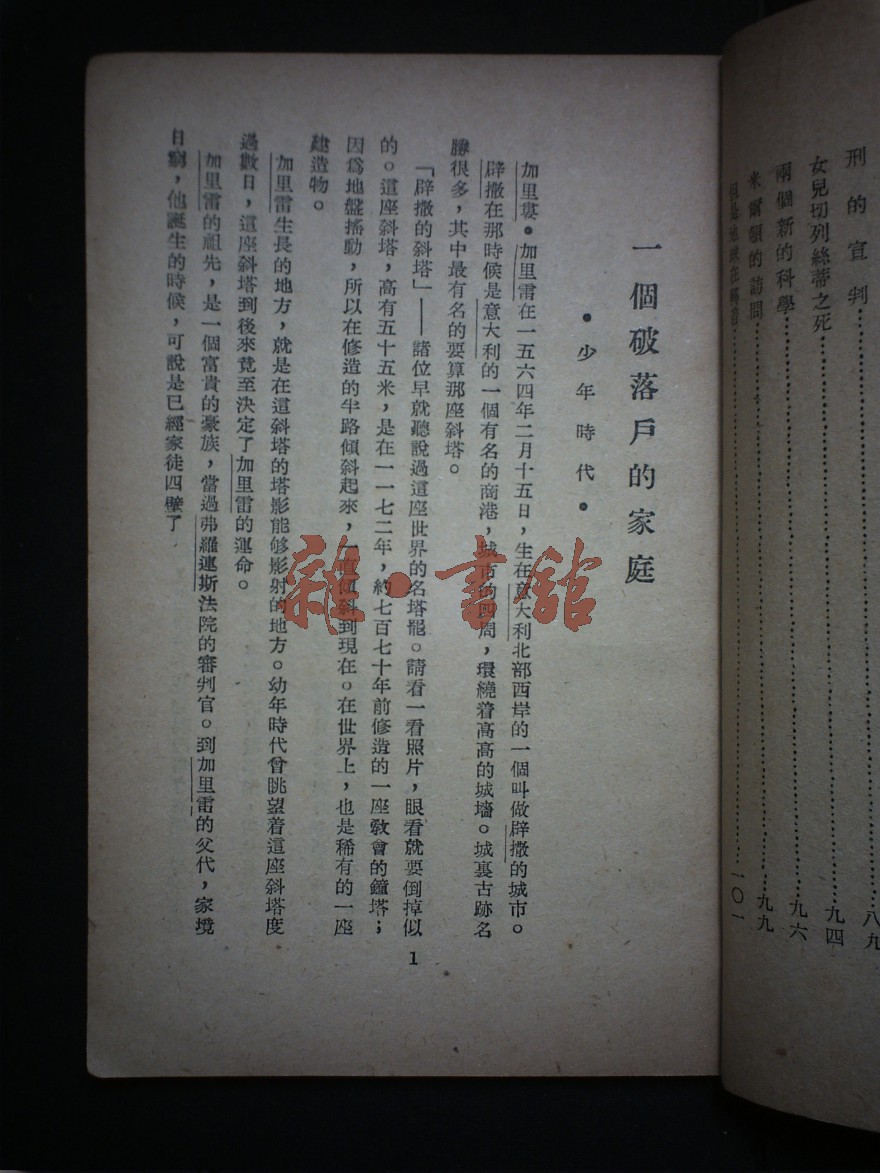 刑的宣判……八九
女兒切列絲蒂之死……九四
兩個新的科學……九六
米爾頓的訪問……九九
但是地球在轉着……一〇一
一個破落戶的家庭
•少年時代•
加里婁•加里雷在一五六四年二月十五日，生在意大利北部西岸的一個叫做辟撒的城市。
辟撒在那時候是意大利的一個有名的商港，城市的四周，環繞着高高的城墻。城裏古跡名
勝很多，其中最有名的要算那座斜塔。
「辟撒的斜塔」——諸位早就聽說過這座世界的名塔罷。請看一看照片，眼看就要倒掉似
的。這座斜塔，高有五十五米，是在一一七二年，約七百七十年前修造的一座教會的鐘塔；
因爲地盤搖動，所以在修造的半路傾斜起來，一直傾斜到現在。在世界上，也是稀有的一座
建造物。
加里雷生長的地方，就是在這斜塔的塔影能够影射的地方。幼年時代曾眺望着這座斜塔度
過數日，這座斜塔到後來竟至決定了加里雷的運命。
加里雷的祖先，是一個富貴的豪族，當過弗羅連斯法院的審判官。到加里雷的父代，家境
日窮，他誕生的時候，可說是已經家徒四壁了
1
雜•書館